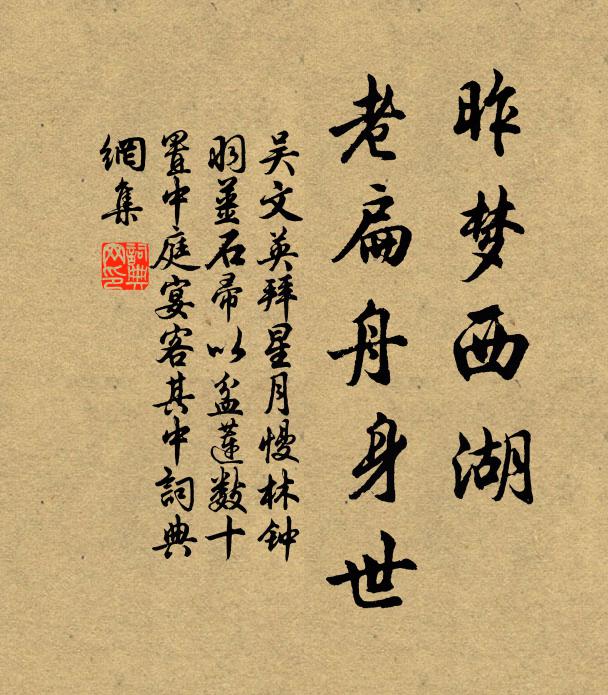 昨梦西湖
老扁舟身世
吴文英拜星月慢林钟
羽薑石帚以盆蓮数十
置中庭宴客其中詞典
網集
詞典
网印